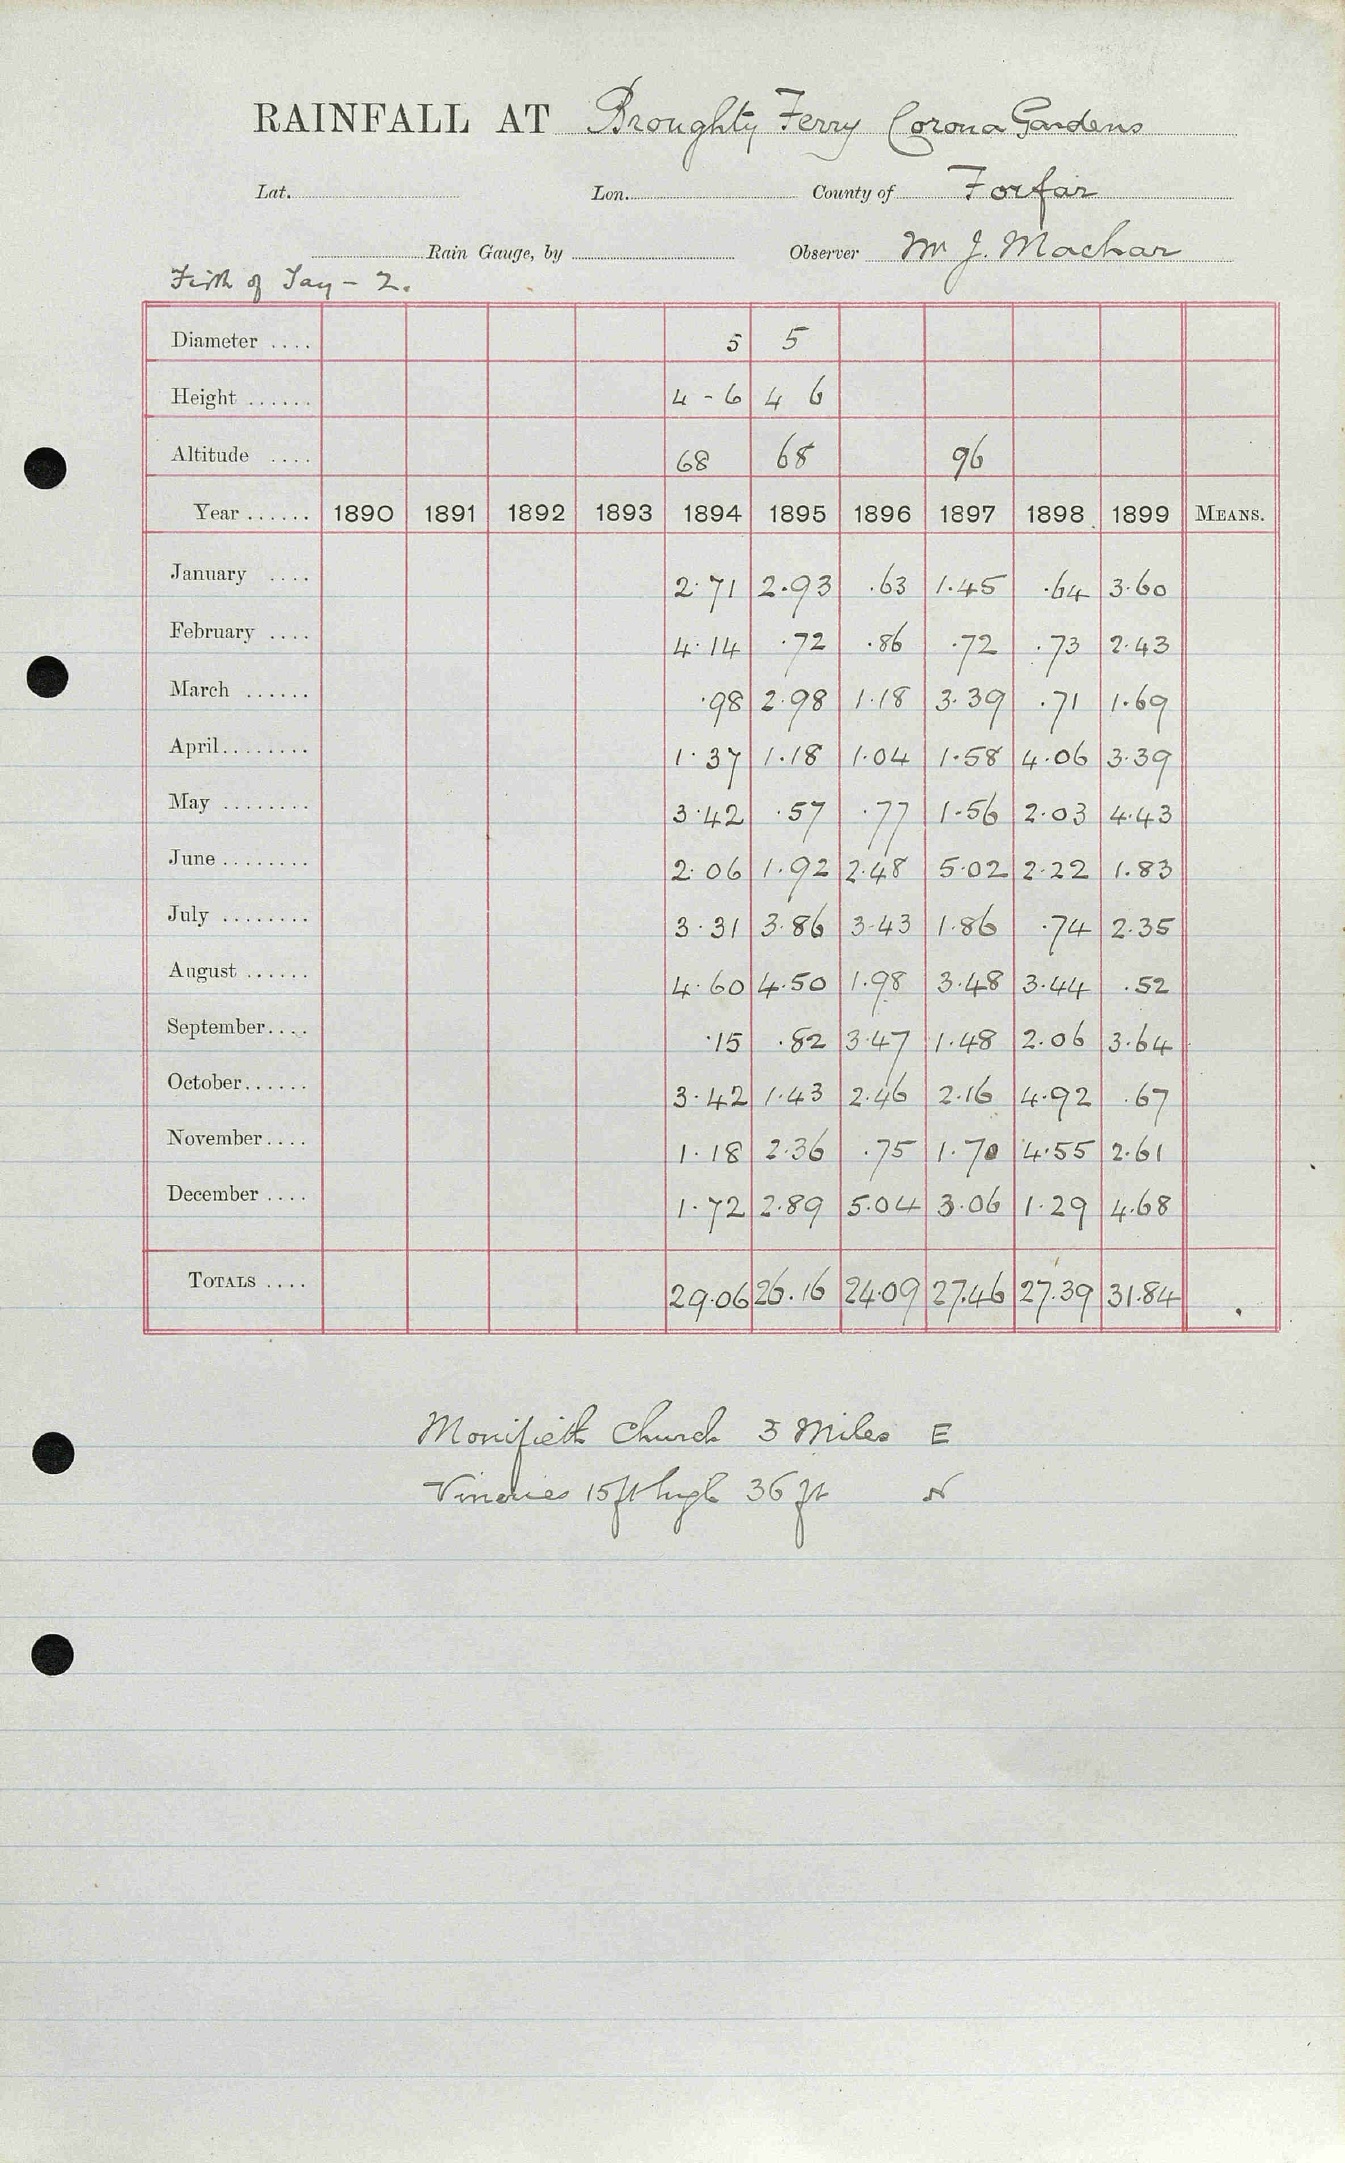 RAINFALL AT Broughty Ferry Corona Gardens
Lat. Lon. County of Forfar
Rain Gauge, by Observer Mr J. Machar
Firth of Tay - 2.
Diameter .... 5 5
Height ...... 4 - 6 4 6
Altitude .... 68 68 96
Year ...... 1890 1891 1892 1893 1894 1895 1896 1897 1898 1899 MEANS.
January .... 2.71 2.93 .63 1.45 .64 3.60
February .... 4.14 .72 .86 .72 .73 2.43
March ...... .98 2.98 1.18 3.39 .71 1.69
April ........ 1.37 1.18 1.04 1.58 4.06 3.39
May ........ 3.42 .57 .77 1.56 2.03 4.43
June ........ 2.06 1.92 2.48 5.02 2.22 1.83
July ........ 3.31 3.86 3.43 1.86 .74 2.35
August ...... 4.60 4.50 1.98 3.48 3.44 .52
September .... .15 .82 3.47 1.48 2.06 3.64
October ...... 3.42 1.43 2.46 2.16 4.92 .67
November .... 1.18 2.36 .75 1.70 4.55 2.61
December .... 1.72 2.89 5.04 3.06 1.29 4.68
TOTALS .... 29.06 26.16 24.09 27.46 27.39 31.84
Monifieth Church 3 Miles E
Vineries 15ft high 36 ft N